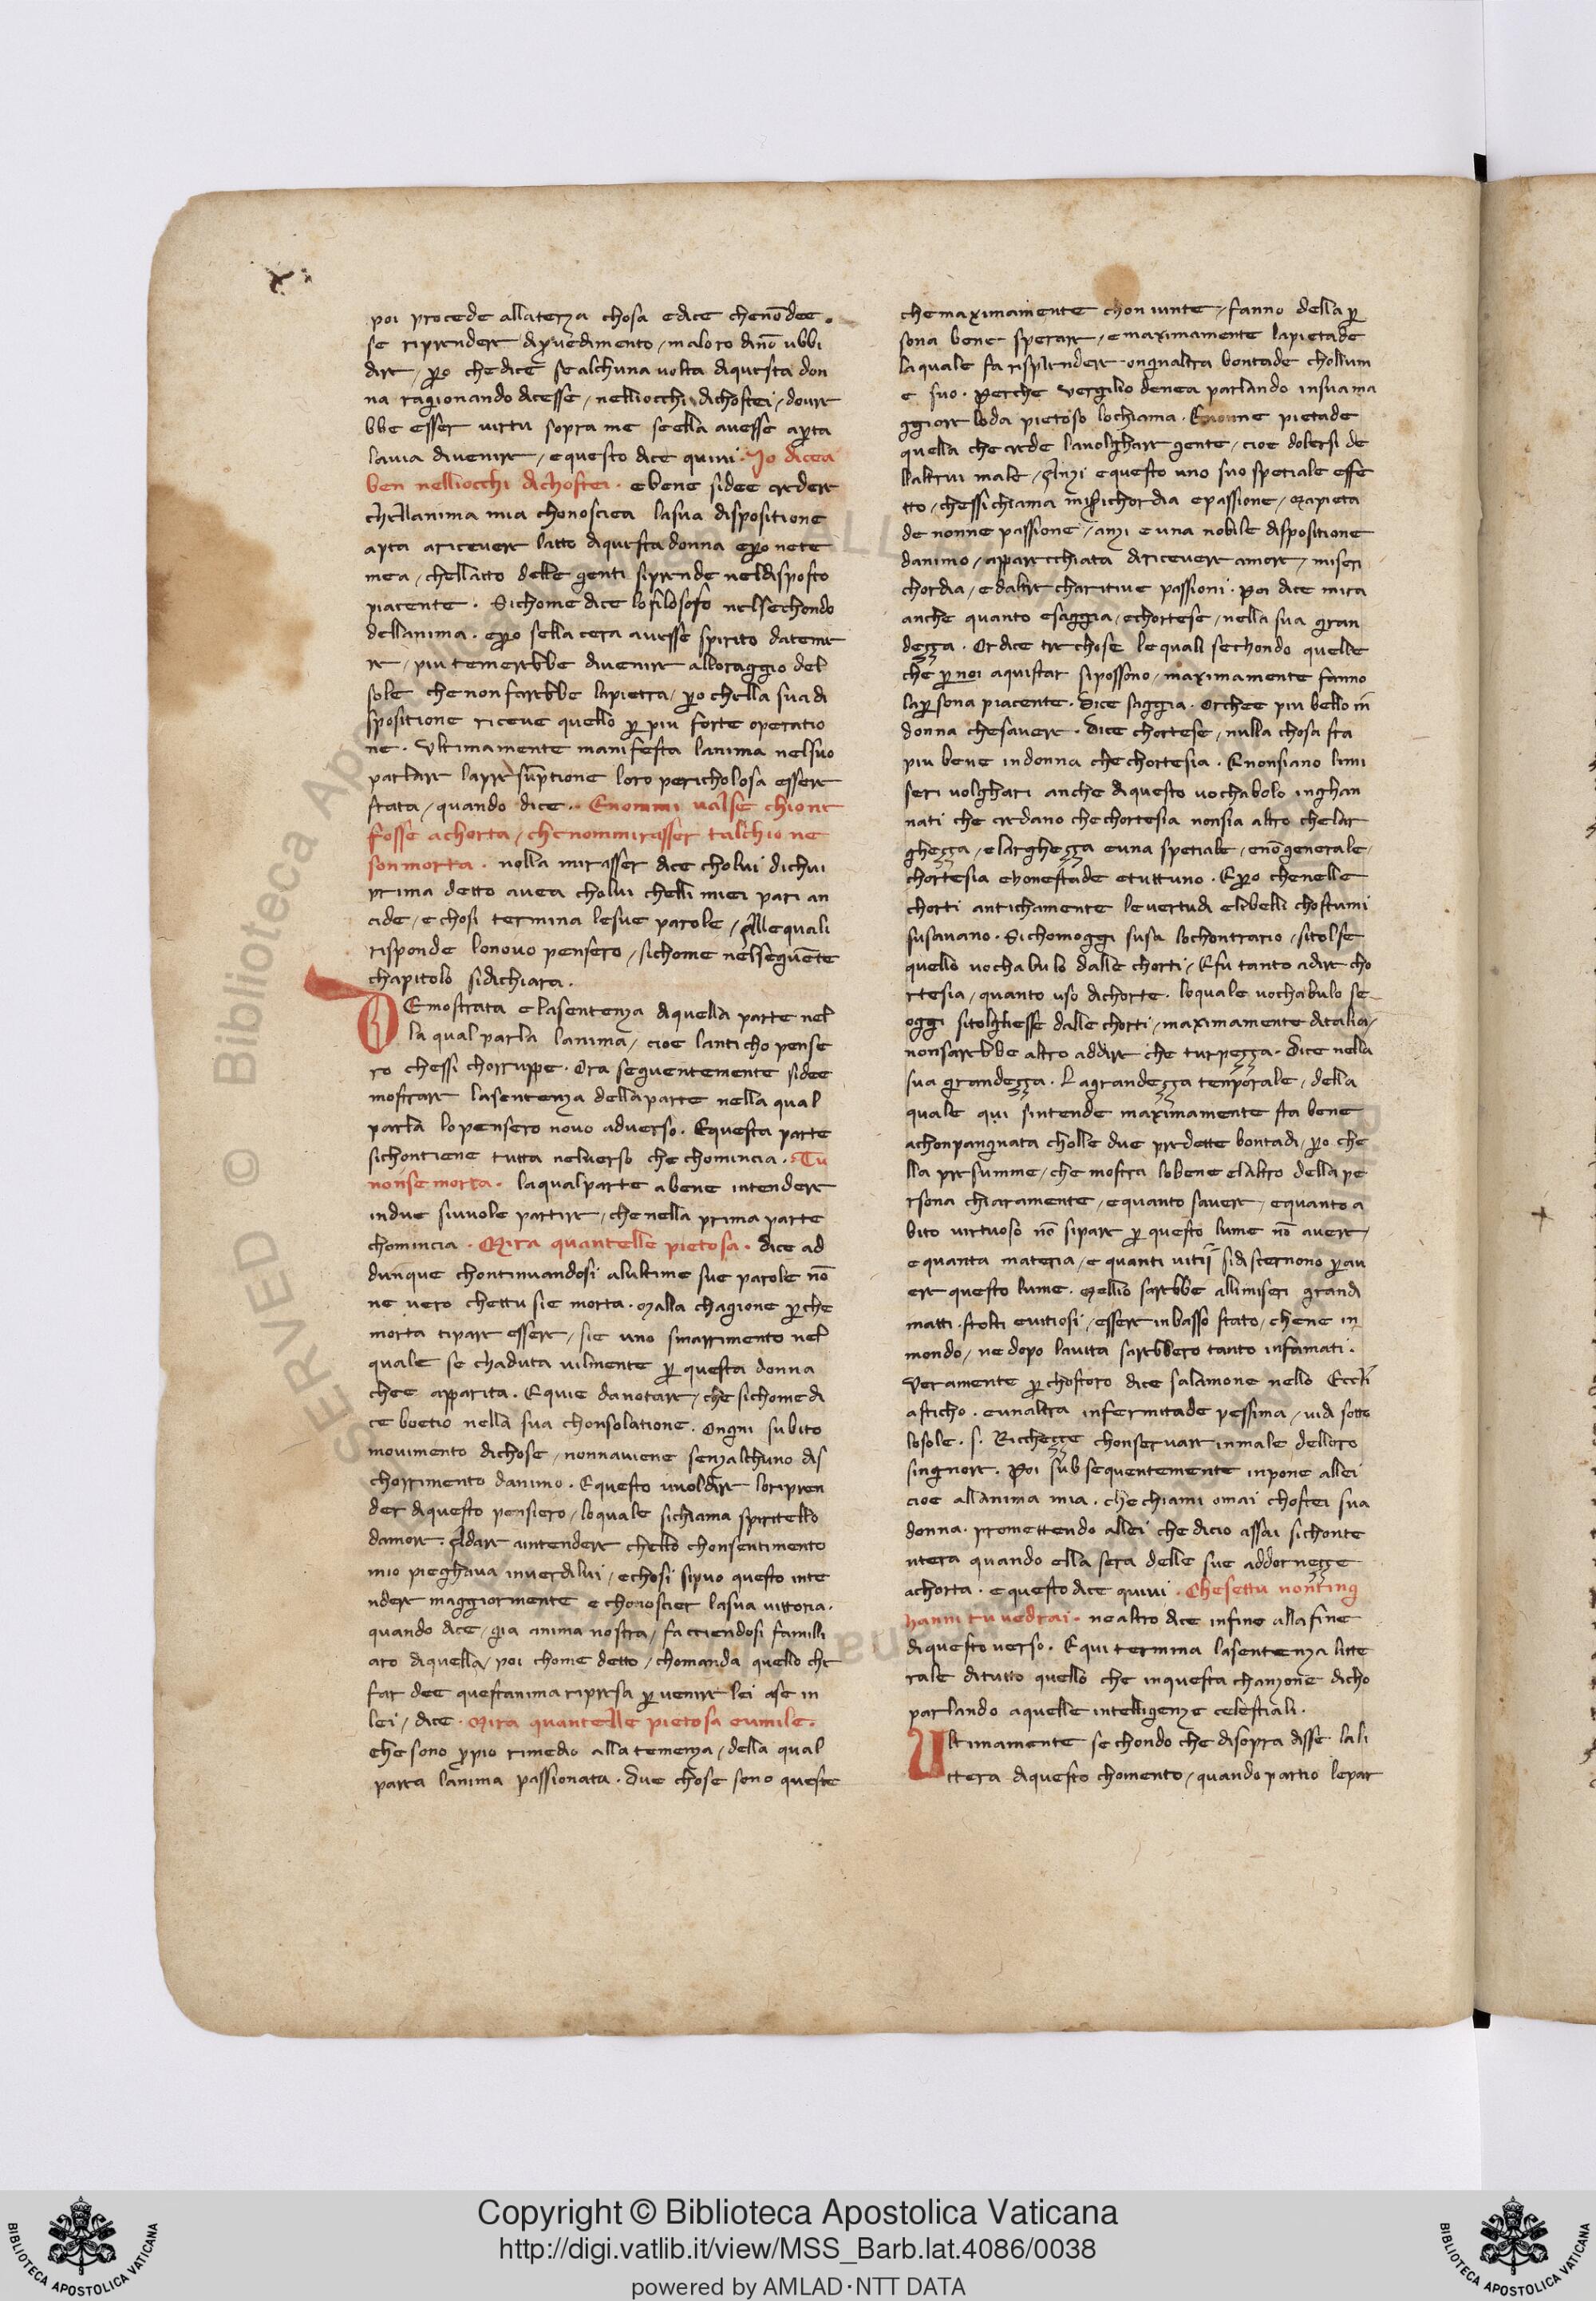 poi procede allaterza chosa e dice chenō dee.
se riprendere di pvedimento / ma loro di nō ubbi
dire / po che dice se alchuna uolta di questa don
na ragionando dicesse / nelliocchi di chostei / dourr
bbe esser uirtu sopra me se ella auesse apta
lauia di uenire / e questo dice quiui. Io dicea
ben nelliocchi di chostei. e bene sidee credere
chellanima mia chonosciea lasua dispositione
apta a riceuere latto di questa donna epo nete
mea / chellatto delle genti siprende neldisposto
piacente. Sichome dice lo filosofo nelsechondo
dellanima. epo sella cera auesse spirito datemer
re / piu temerebbe di uenire alloraggio del
sole che non farebbe lapietra / po chella sua di
spositione riceue quello p piu forte operatio
ne. Ultimamente manifesta lanima nelsuo
parlare lapresūptione loro pericholosa essere
stata / quando dice. E nommi ualse chione
fosse achorta / che nommirasser talchio ne
son morta. nolla mirasser dice cholui di chui
prima detto auea cholui chelli miei pari an
cide / e chosi termina lesue parole / Alle quali
risponde lonouo pensero / sichome nelseguēte
chapitolo sidichiara.
DEmostrata e lasentenza di quella parte nel
la qual parla lanima / cioe lanticho pense
ro chessi chorruppe. Ora seguentemente sidee
mostrare lasentenza della parte nella qual
parla lo pensero nouo aduerso. E questa parte
sichontiene tutta neluerso che chomincia. Tu
nonse morta. la qual parte a bene intendere
indue siuuole partire / che nella prima parte
chomincia. Mira quantelle pietosa. dice ad
dunque chontinuandosi alultime sue parole nō
ne uero chettu sie morta. Malla chagione pche
morta tipare essere / sie uno smarrimento nel
quale se chaduta uilmente p questa donna
chee apparita. E quie da notare / che sichome di
ce boetio nella sua chonsolatione. Ongni subito
mouimento di chose / nonnauiene senzalchuno dis
chorrimento danimo. E questo uuoldire loripren
der di questo pensiero / lo quale sichiama spiritello
damore. Adare antendere chello chonsentimento
mio pieghaua inuerdilui / e chosi sipuo questo inte
ndere maggiormente e chonoscier lasua uittoria.
quando dice / gia anima nostra / facciendosi familli
aro di quella / poi chome detto / chomanda quello che
far dee questanima ripresa p uenire lei ase in
lei / dice. Mira quantelle pietosa eumile.
che sono ppio rimedio alla temenza / della qual
parea lanima passionata. due chose sono queste
che maximamente chon iunte / fanno della p
sona bene sperare / e maximamente lapietade
la quale fa risplendere ongnaltra bontade chollum
e suo. Perche Vergilio denea parlando insua ma
ggiore loda pietoso lochiama. E nonne pietade
quella che crede lauolghare gente / cioe dolersi de
llaltrui male / Anzi e questo uno suo spetiale effe
tto / chessichiama misericordia e passione / Mapieta
de nonne passione / anzi e una nobile dispositione
danimo / apparecchiata di riceuere amore / miseri
chordia / ed altre charitiue passioni. Poi dice mira
anche quanto e saggia / e chortese / nella sua gran
dezza. Or dice tre chose le quali sechondo quelle
che p noi aquistar sipossono / maximamente fanno
lapsona piacente. dice saggia. Or chee piu bello in
donna che sauere. dice chortese / nulla chosa sta
piu bene in donna che chortesia. E nonsiano limi
seri uolghari anche di questo uochabolo inghan
nati che credano che chortesia nonsia altro che lar
ghezza / e larghezza e una spetiale / e nō generale
chortesia e honestade etuttuno. E po che nelle
chorti antichamente leuertudi e libelli chostumi
susauano. Sichomoggi susa lochontrario / sitolse
quello uochabulo dalle chorti / E fu tanto adire cho
rtesia / quanto uso di chorte. lo quale uochabulo se
oggi sitolghesse dalle chorti / maximamente ditalia /
nonsarebbe altro addire che turpezza. dice nella
sua grandezza. La grandezza temporale / della
quale qui sintende maximamente sta bene
achonpangnata cholle due predette bontadi / po che
lla presumme / che mostra lobene elaltro della pe
rsona chiaramente / e quanto sauere / e quanto a
bito uirtuoso nō sipare p questo lume nō auere /
e quanta materia / e quanti uitij sidiscernono p au
er questo lume. Mellio sarebbe allimiseri grandi
matti. stolti euitiosi / essere inbasso stato / chene in
mondo / ne dopo lauita sarebbero tanto infamati.
Veramente p chostoro dice salamone nello Eccli
asticho. e unaltra infermitade pessima / uidi sotto
losole. s. Ricchezze chonseruare inmale delloro
singnore. Poi subsequentemente inpone allei
cioe allanima mia. che chiami omai chostei sua
donna. promettendo allei che dicio assai sichonte
ntera quando ella sera delle sue addornezze
achorta. e questo dice quiui. Chesettu nonting
hanni tu uedrai. ne altro dice infine alla fine
di questo uerso. E qui termina lasentenza litte
rale ditutto quello che inquesta chanzone dicho
parlando a quelle intelligenze celestiali.
Ultimamente sechondo che disopra disse lali
ttera di questo chomento / quando partio lepar
Copyright © Biblioteca Apostolica Vaticana
http://digi.vatlib.it/view/MSS_Barb.lat.4086/0038
powered by AMLAD·NTT DATA
BIBLIOTECA APOSTOLICA VATICANA
BIBLIOTECA APOSTOLICA VATICANA